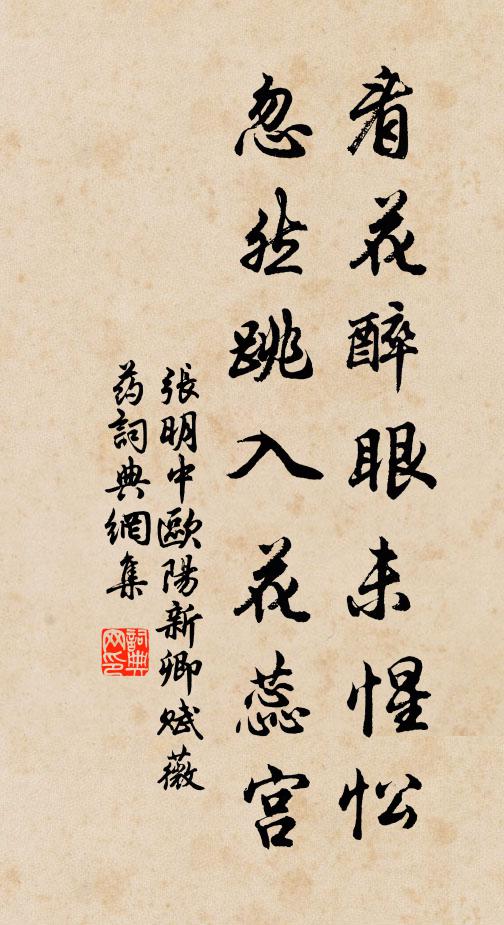 看花醉眼未惺忪
忽然跳入花蕊宫
張明中歐陽新卿賦薇
药詞典網集
詞典
网印